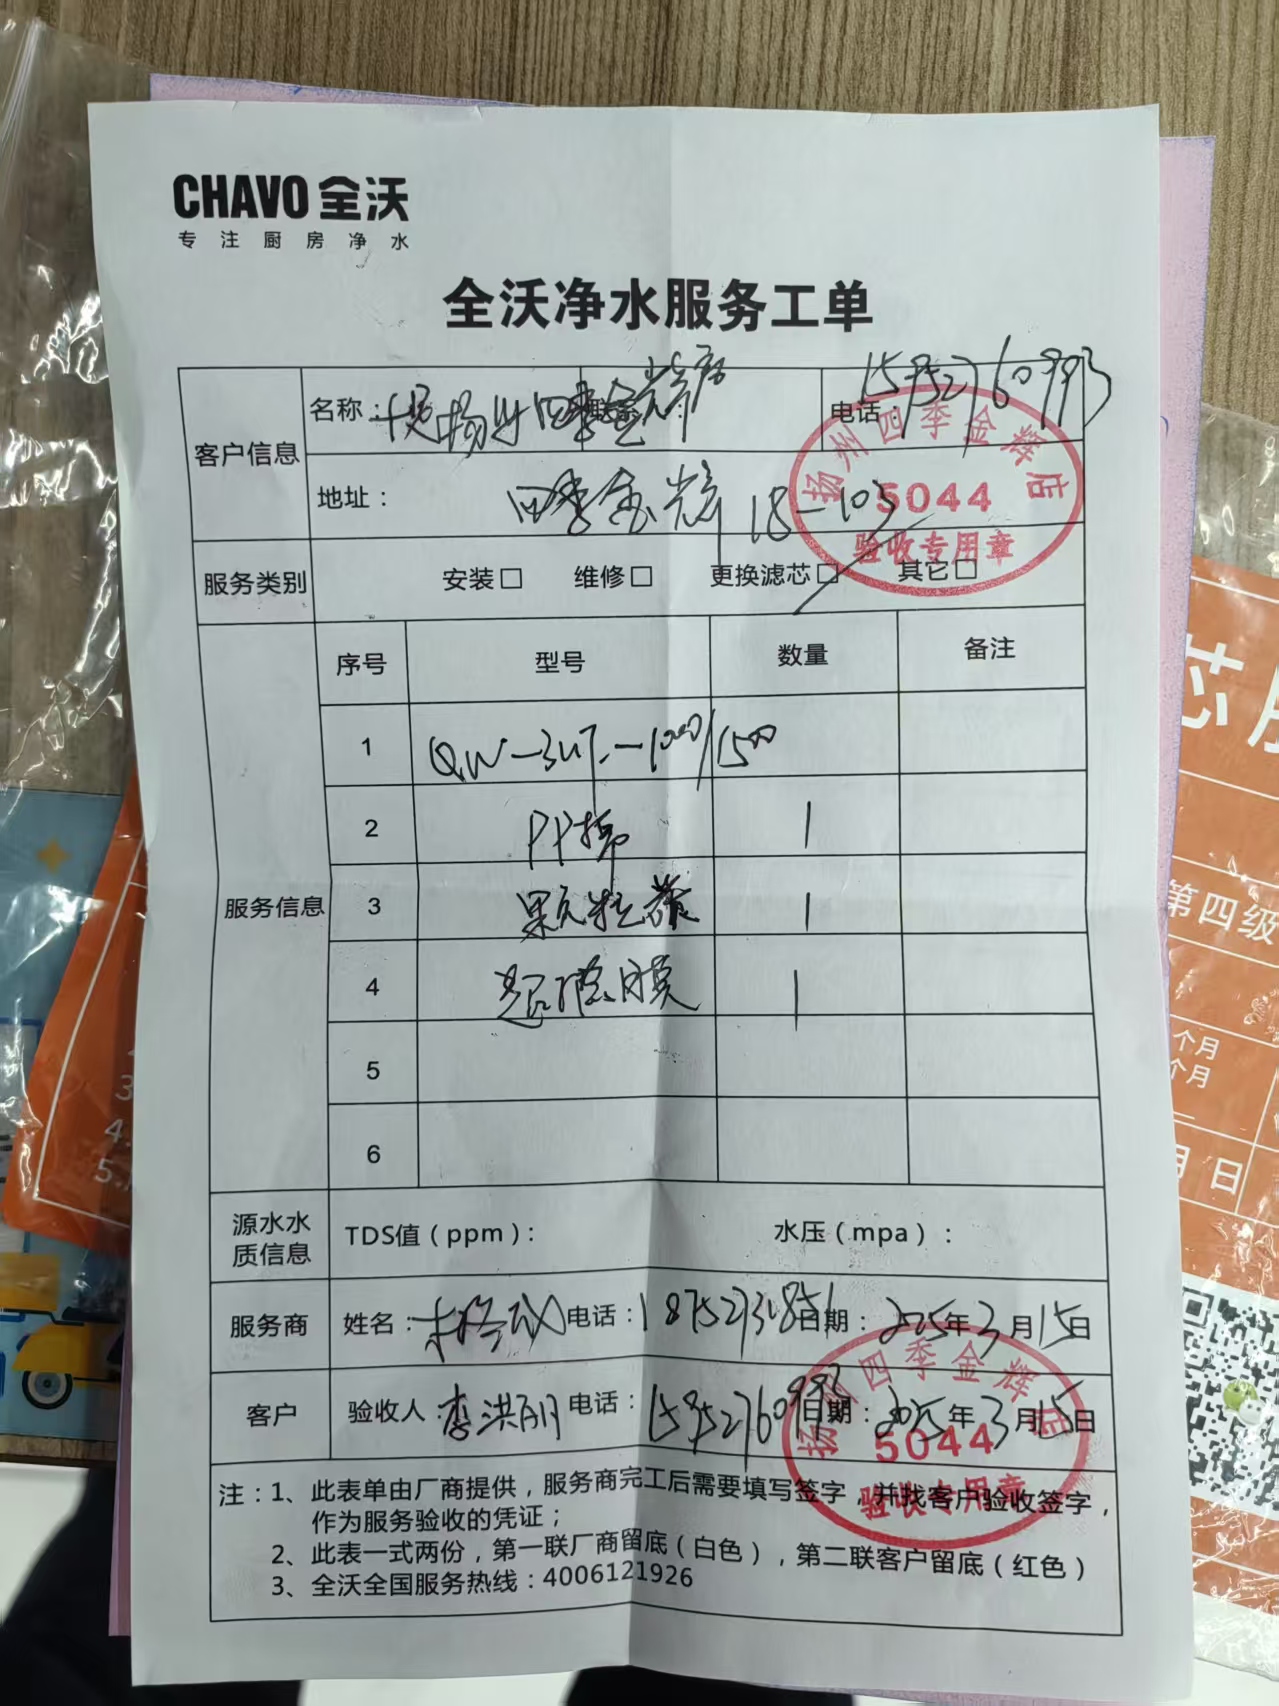 CHAVO 全沃
专注厨房净水
全沃净水服务工单
客户信息
名称： 扬州四季金辉店
电话： 15952760993
地址： 四季金辉 18-103
扬州四季金辉店
5044
验收专用章
服务类别 安装□ 维修□ 更换滤芯□ 其它□
服务信息
序号 型号 数量 备注
1 -1000/1500
2 PP棉 1
3 颗粒炭 1
4 超滤膜 1
5
6
源水水质信息 TDS值（ppm）： 水压（mpa）：
服务商 姓名： 电话：18752730851 日期：2025年3月15日
客户 验收人：李洪丽 电话：15952760993 日期：2025年3月15日
扬州四季金辉店
5044
验收专用章
注：1、此表单由厂商提供，服务商完工后需要填写签字，并找客户验收签字，
作为服务验收的凭证；
2、此表一式两份，第一联厂商留底（白色），第二联客户留底（红色）
3、全沃全国服务热线：4006121926
芯
第四级
个月
个月
月 日
3
4.
5.